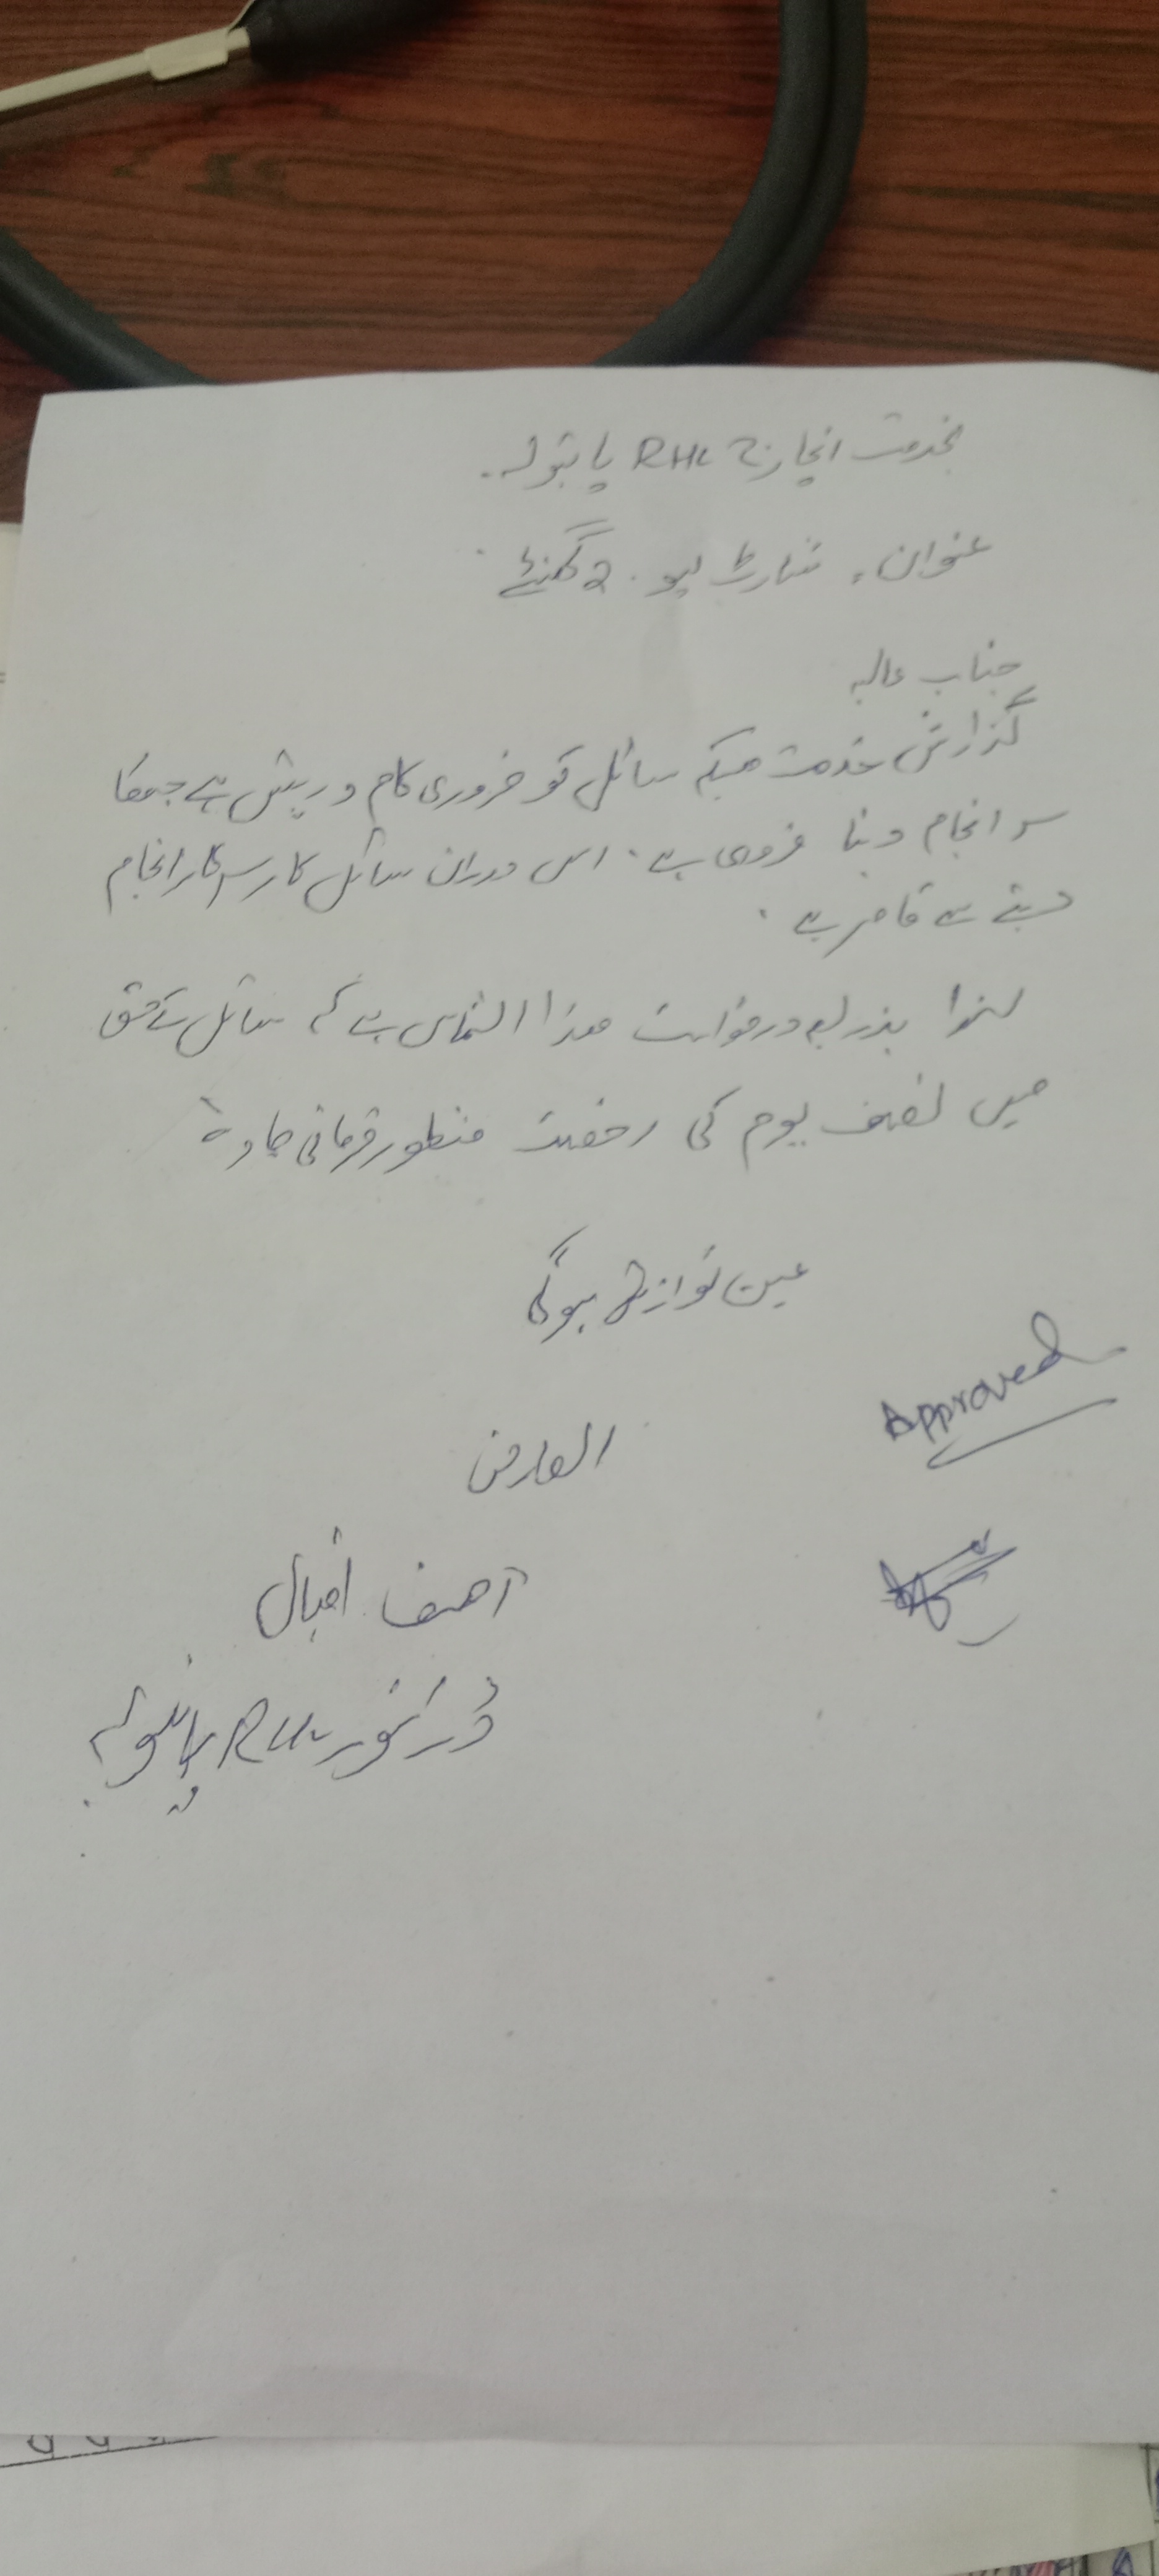 بخدمت انچارج RHC پاہتولہ.
عنوان، شارٹ لیو . 2 گھنٹے
جناب عالیہ
گزارش خدمت ہیکہ سائل کو ضروری کام درپیش ہے جسکا
سر انجام دینا ضروری ہے. اس دوران سائل کار سرکار انجام
دینے سے قاصر ہے.
لہذا بذریعہ درخواست ھذا التماس ہے کہ سائل کے حق
میں نصف یوم کی رخصت منظور فرمائی جاوے
عین نوازش ہوگی
Approved
العارض
آصف اقبال
ڈرائیور RHC